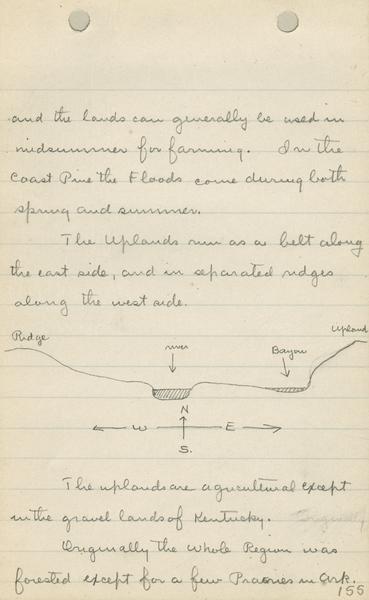 and the lands can generally be used in
midsummer for farming. In the
Coast Pine the Floods come during both
spring and summer.
The Uplands run as a belt along
the east side, and in separated ridges
along the west side.
Ridge river Bayou Upland
N
W E
S.
The uplands are agricultural except
in the gravel lands of Kentucky. Originally
Originally the whole Region was
forested except for a few Prairies in Ark.
155